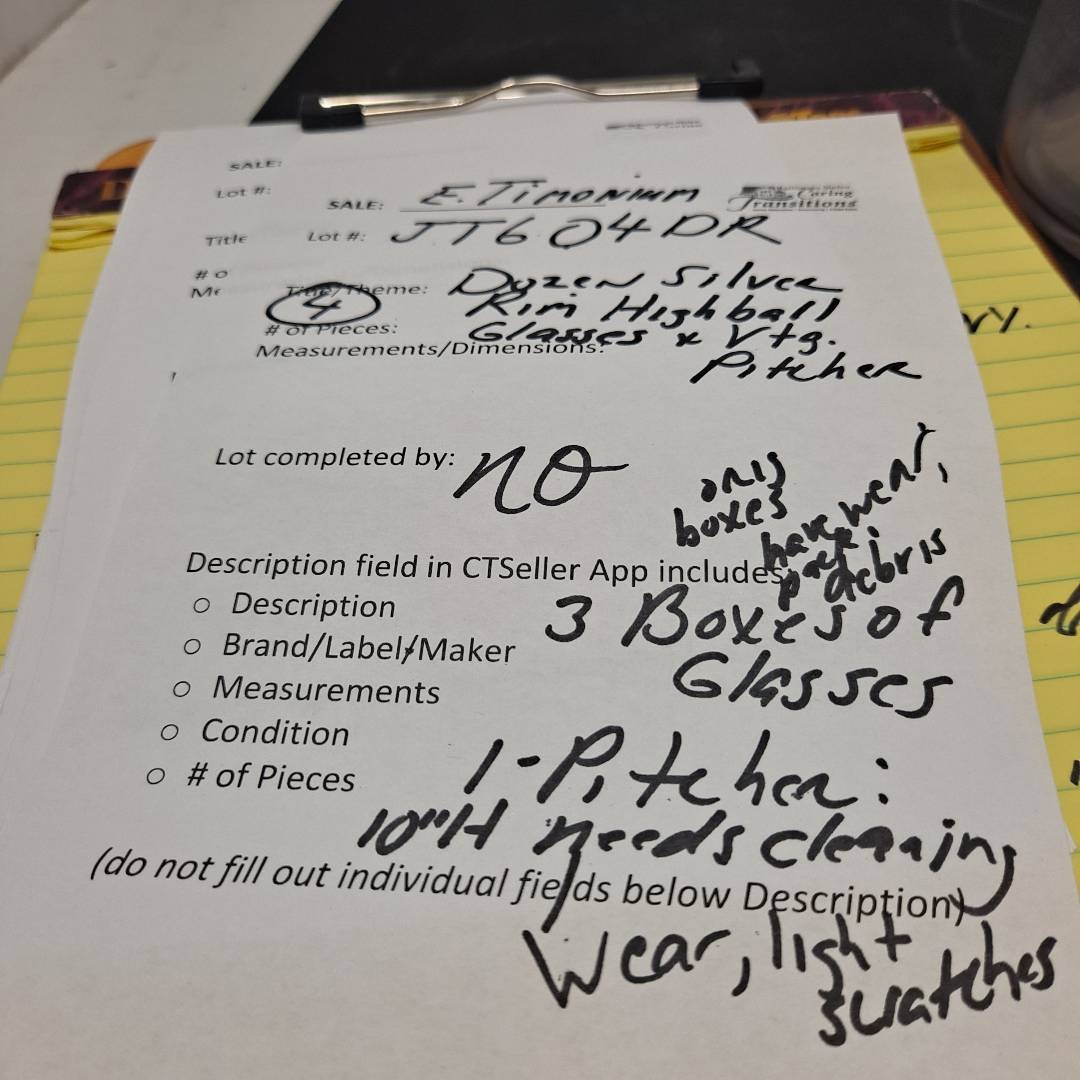 SALE:
Lot #:
SALE: E. Timonium
Caring
Transitions
Title
Lot #: JT604DR
# o
Title/Theme: Dozen Silver
4
Rim Highball
# of Pieces:
Glasses x Vtg.
Measurements/Dimensions:
Pitcher
Lot completed by: NO
only
boxes
have wear,
debris
Description field in CTSeller App includes
Description
3 Boxes of
Brand/Label/Maker
Glasses
Measurements
Condition
# of Pieces
1-Pitcher:
10"H needs cleaning
(do not fill out individual fields below Description)
Wear, light
scratches